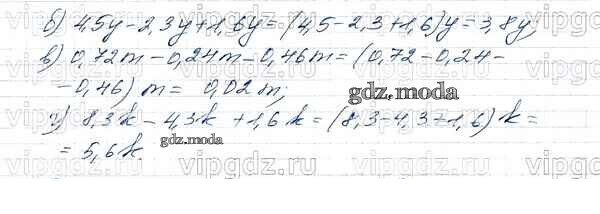 б) 4,5y - 2,3y + 1,6y = (4,5 - 2,3 + 1,6)y = 3,8y;
в) 0,72m - 0,24m - 0,46m = (0,72 - 0,24 -
- 0,46) m = 0,02m;
gdz.moda
г) 8,3k - 4,3k + 1,6k = (8,3 - 4,3 + 1,6) k =
gdz.moda
= 5,6k.
vipgdz.ru vipgdz.ru vipgdz.ru vipgdz.ru